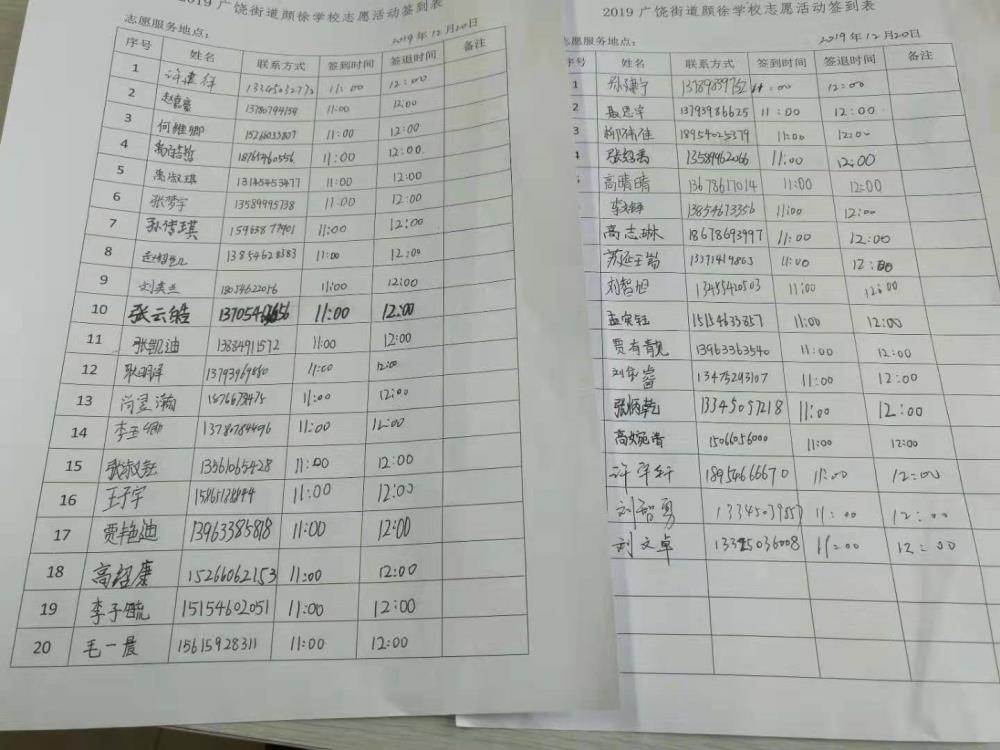 2019 广饶街道颜徐学校志愿活动签到表
志愿服务地点： 2019年12月20日
序号 姓名 联系方式 签到时间 签退时间 备注
1 11:00 12:00
2 13780794154 11:00 12:00
3 何维卿 15266033807 11:00 12:00
4 18761460556 11:00 12:00
5 13145453477 11:00 12:00
6 张梦宇 13589995738 11:00 12:00
7 孙传琪 15963877901 11:00 12:00
8 13854628383 11:00 12:00
9 11:00 12:00
10 张云皓 11:00 12:00
11 张凯迪 13884911572 11:00 12:00
12 耿明泽 11:00 12:00
13 尚昱瀚 11:00 12:00
14 李玉卿 13780784496 11:00 12:00
15 张淑钰 13561065428 11:00 12:00
16 王子宇 11:00 12:00
17 贾艳迪 13963385818 11:00 12:00
18 高绍康 15266062153 11:00 12:00
19 李子毓 15154602051 11:00 12:00
20 毛一晨 15615928311 11:00 12:00
2019 广饶街道颜徐学校志愿活动签到表
志愿服务地点： 2019年12月20日
序号 姓名 联系方式 签到时间 签退时间 备注
1 11:00 12:00
2 聂思宇 13793986625 11:00 12:00
3 18954025379 11:00 12:00
4 13589462066 11:00 12:00
高晴晴 13678617014 11:00 12:00
13854673356 11:00 12:00
高志琳 18678693997 11:00 12:00
13371419863 11:00 12:00
刘智旭 13455420503 11:00 12:00
孟实钰 15154633857 11:00 12:00
贾有靓 13963363540 11:00 12:00
13475293107 11:00 12:00
张炳乾 13345057218 11:00 12:00
高婉清 15066056000 11:00 12:00
18954666670 11:00 12:00
刘智勇 11:00 12:00
刘文卓 13325036008 11:00 12:00